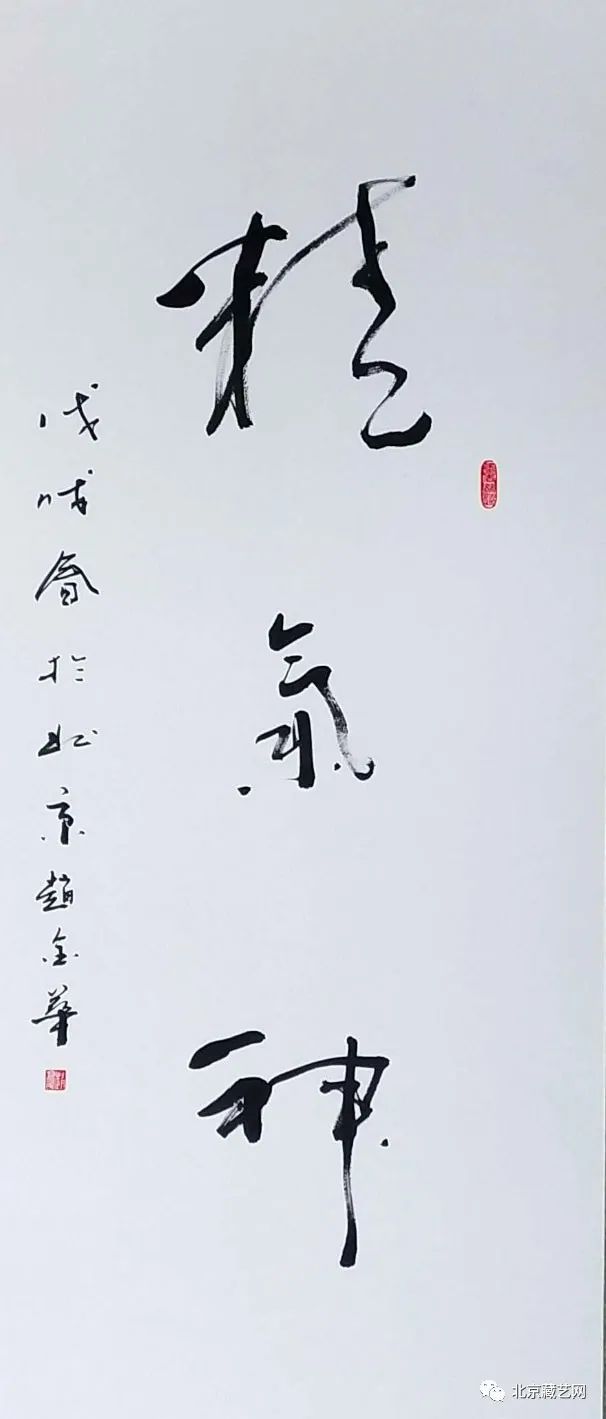 精氣神
戊戌春於北京趙金華
北京藏艺网